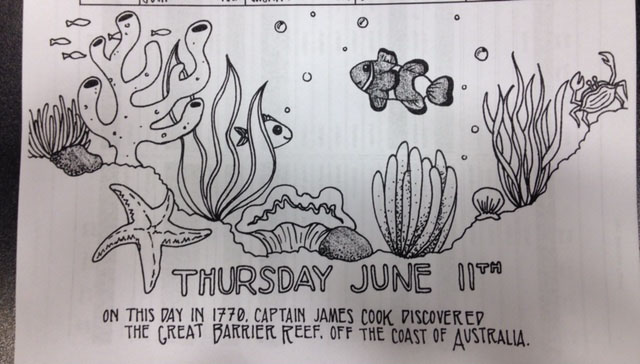 THURSDAY JUNE 11TH
ON THIS DAY IN 1770, CAPTAIN JAMES COOK DISCOVERED
THE GREAT BARRIER REEF, OFF THE COAST OF AUSTRALIA.